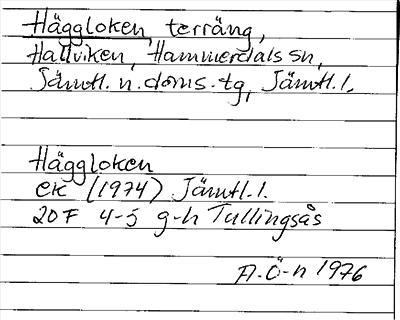 Häggloken, terräng,
Hallviken, Hammerdals sn,
Jämtl. n. doms. tg, Jämtl. l.
Häggloken
ek (1974) Jämtl. l.
20F 4-5 g-h Tullingsås
A. Ö-n 1976